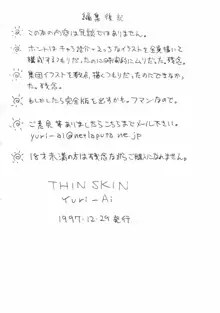 編集後記
この本の内容は冗談ではありません。
ホントはキャラ紹介っつーよーなイラストを全員描いて
構成するつもりだったのに時間的にムリだった。残念。
集団イラストを数点、描くつもりだったのにできなかっ
た。残念。
もしかしたら完全版を出すかも。フマンなので。
ご意見等ありましたらこちらまでメール下さい。
yuri-ai@netlaputa.ne.jp
18才未満の方は残念ながらご購入になれません。
THIN SKIN
Yuri-Ai
1997.12.29発行